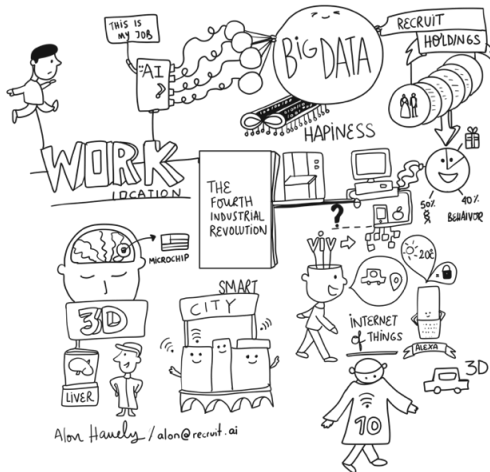 THIS IS
MY JOB
"AI
BIG DATA
RECRUIT
HOLDINGS
HAPINESS
WORK
LOCATION
THE
FOURTH
INDUSTRIAL
REVOLUTION
?
50%
40%
BEHAIVOR
MICROCHIP
3D
LIVER
SMART
CITY
20¢
INTERNET
of THINGS
ALEXA
3D
10
alon@recruit.ai